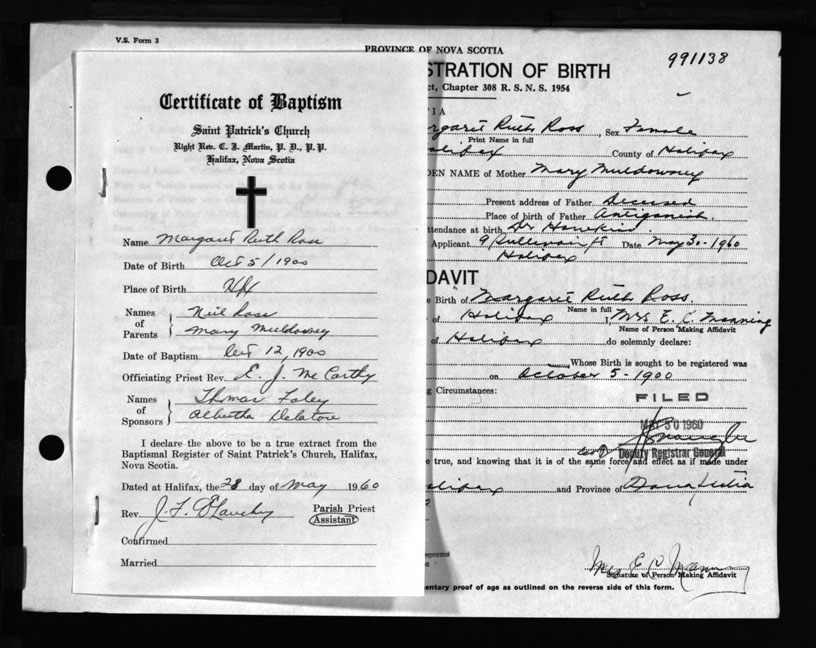 V.S. Form 3
PROVINCE OF NOVA SCOTIA
991138
Certificate of Baptism
Saint Patrick's Church
Right Rev. C. J. Martin, P. D., P. P.
Halifax, Nova Scotia
Name Margaret Ruth Ross
Date of Birth Oct 5/1900
Place of Birth Hfx
Names of Parents
Neil Ross
Mary Muldowney
Date of Baptism Oct 12, 1900
Officiating Priest Rev. E. J. McCarthy
Names of Sponsors
Thomas Foley
Albertha Delatore
I declare the above to be a true extract from the
Baptismal Register of Saint Patrick's Church, Halifax,
Nova Scotia.
Dated at Halifax, the 28 day of May 1960
Rev. J. F.
Parish Priest
Assistant
Confirmed
Married
STRATION OF BIRTH
ct, Chapter 308 R. S. N. S. 1954
IA
rgaret Ruth Ross, Sex Female
Print Name in full
alifax County of Halifax
DEN NAME of Mother Mary Muldowney
Present address of Father Deceased
Place of birth of Father Antigonish
ttendance at birth Dr
Applicant 9 Date May 30-1960
Halifax
DAVIT
e Birth of Margaret Ruth Ross
Name in full
of Halifax, Mrs E. C. Manning
Name of Person Making Affidavit
of Halifax do solemnly declare:
Whose Birth is sought to be registered was
on October 5-1900
g Circumstances:
FILED
MAY 30 1960
Deputy Registrar General
e true, and knowing that it is of the same force and effect as if made under
alifax and Province of Nova Scotia
Mrs E C Manning
Signature of Person Making Affidavit
entary proof of age as outlined on the reverse side of this form.